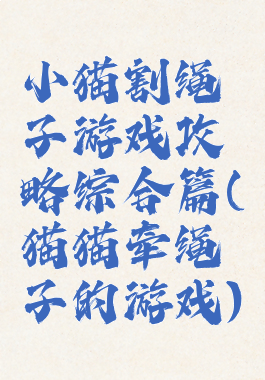 小猫割绳
子游戏攻
略综合篇(
猫猫牵绳
子的游戏)